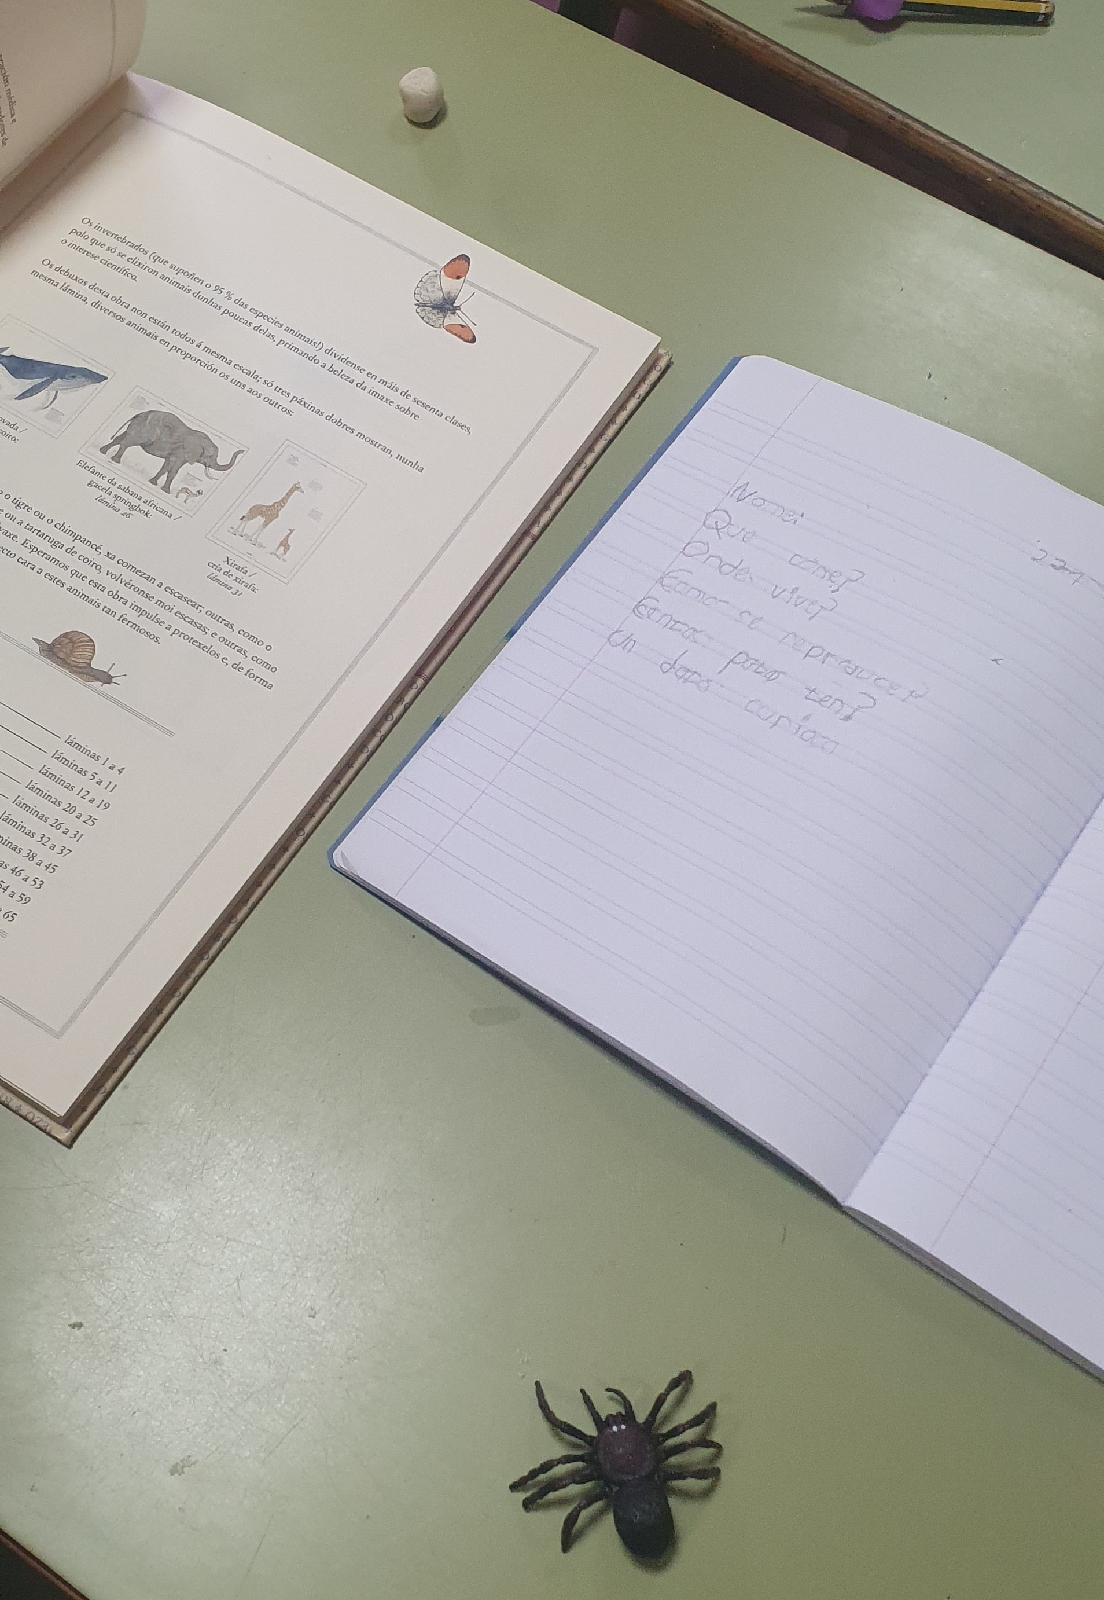 Os invertebrados (que supoñen o 95 % das especies animais!) divídense en máis de sesenta clases,
polo que só se elixiron animais dunhas poucas delas, primando a beleza da imaxe sobre
o interese científico.
Os debuxos desta obra non están todos á mesma escala; só tres páxinas dobres mostran, nunha
mesma lámina, diversos animais en proporción os uns aos outros:
Elefante da sabana africana /
gacela springbok:
lámina 26
Xirafa /
cría de xirafa:
lámina 31
o tigre ou o chimpancé, xa comezan a escasear; outras, como o
ou a tartaruga de coiro, volvéronse moi escasas; e outras, como
Esperamos que esta obra impulse a protexelos e, de forma
cara a estes animais tan fermosos.
láminas 1 a 4
láminas 5 a 11
láminas 12 a 19
láminas 20 a 25
láminas 26 a 31
láminas 32 a 37
38 a 45
46 a 53
54 a 59
65
Nome:
Que come?
Onde vive?
Como se reproduce?
Cantas patas ten?
Un dato curioso